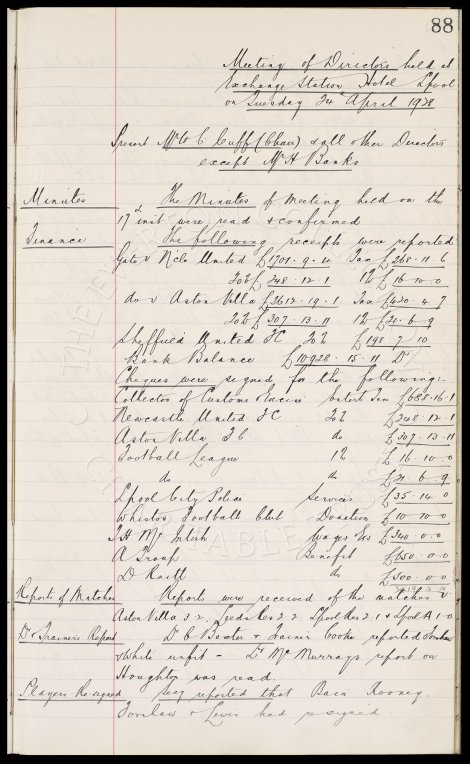 88
Meeting of Directors held at
Exchange Station Hotel Lpool
on Tuesday 24th April 1928
Present Mr W C Cuff (Chair) & all other Directors
except Mr H Banks
Minutes The Minutes of Meeting held on the
17th inst were read & confirmed
Finance The following receipts were reported
Gate v N'cle United £1701.9.4 Tax £268.11.6
20% £248.12.1 1% £16.10.0
do v Aston Villa £2612.19.1 Tax £420.4.7
20% £307.13.11 1% £21.6.9
Sheffield United FC 20% £198.7.10
Bank Balance £10928.15.11 Dr
Cheques were signed for the following:-
Collector of Customs & Excise Entert Tax £688.16.1
Newcastle United FC 20% £248.12.1
Aston Villa FC do £307.13.11
Football League 1% £16.10.0
do do £21.6.9
Lpool City Police Services £35.14.0
Whiston Football Club Donation £10.10.0
T H McIntosh Wages &c £340.0.0
A Troup Benefit £650.0.0
D Raitt do £500.0.0
Report of Matches Reports were received of the matches v
Aston Villa 3.2. Leeds Res 2.2 Lpool Res 2.1 & Lpool A 1.0
Dr & Trainers Report Dr C Baxter & Trainer Cooke reported
& White unfit - Dr McMurrays report on
Houghton was read.
Players Re-signed Secy reported that Bain Rooney
& Lewis had re-signed